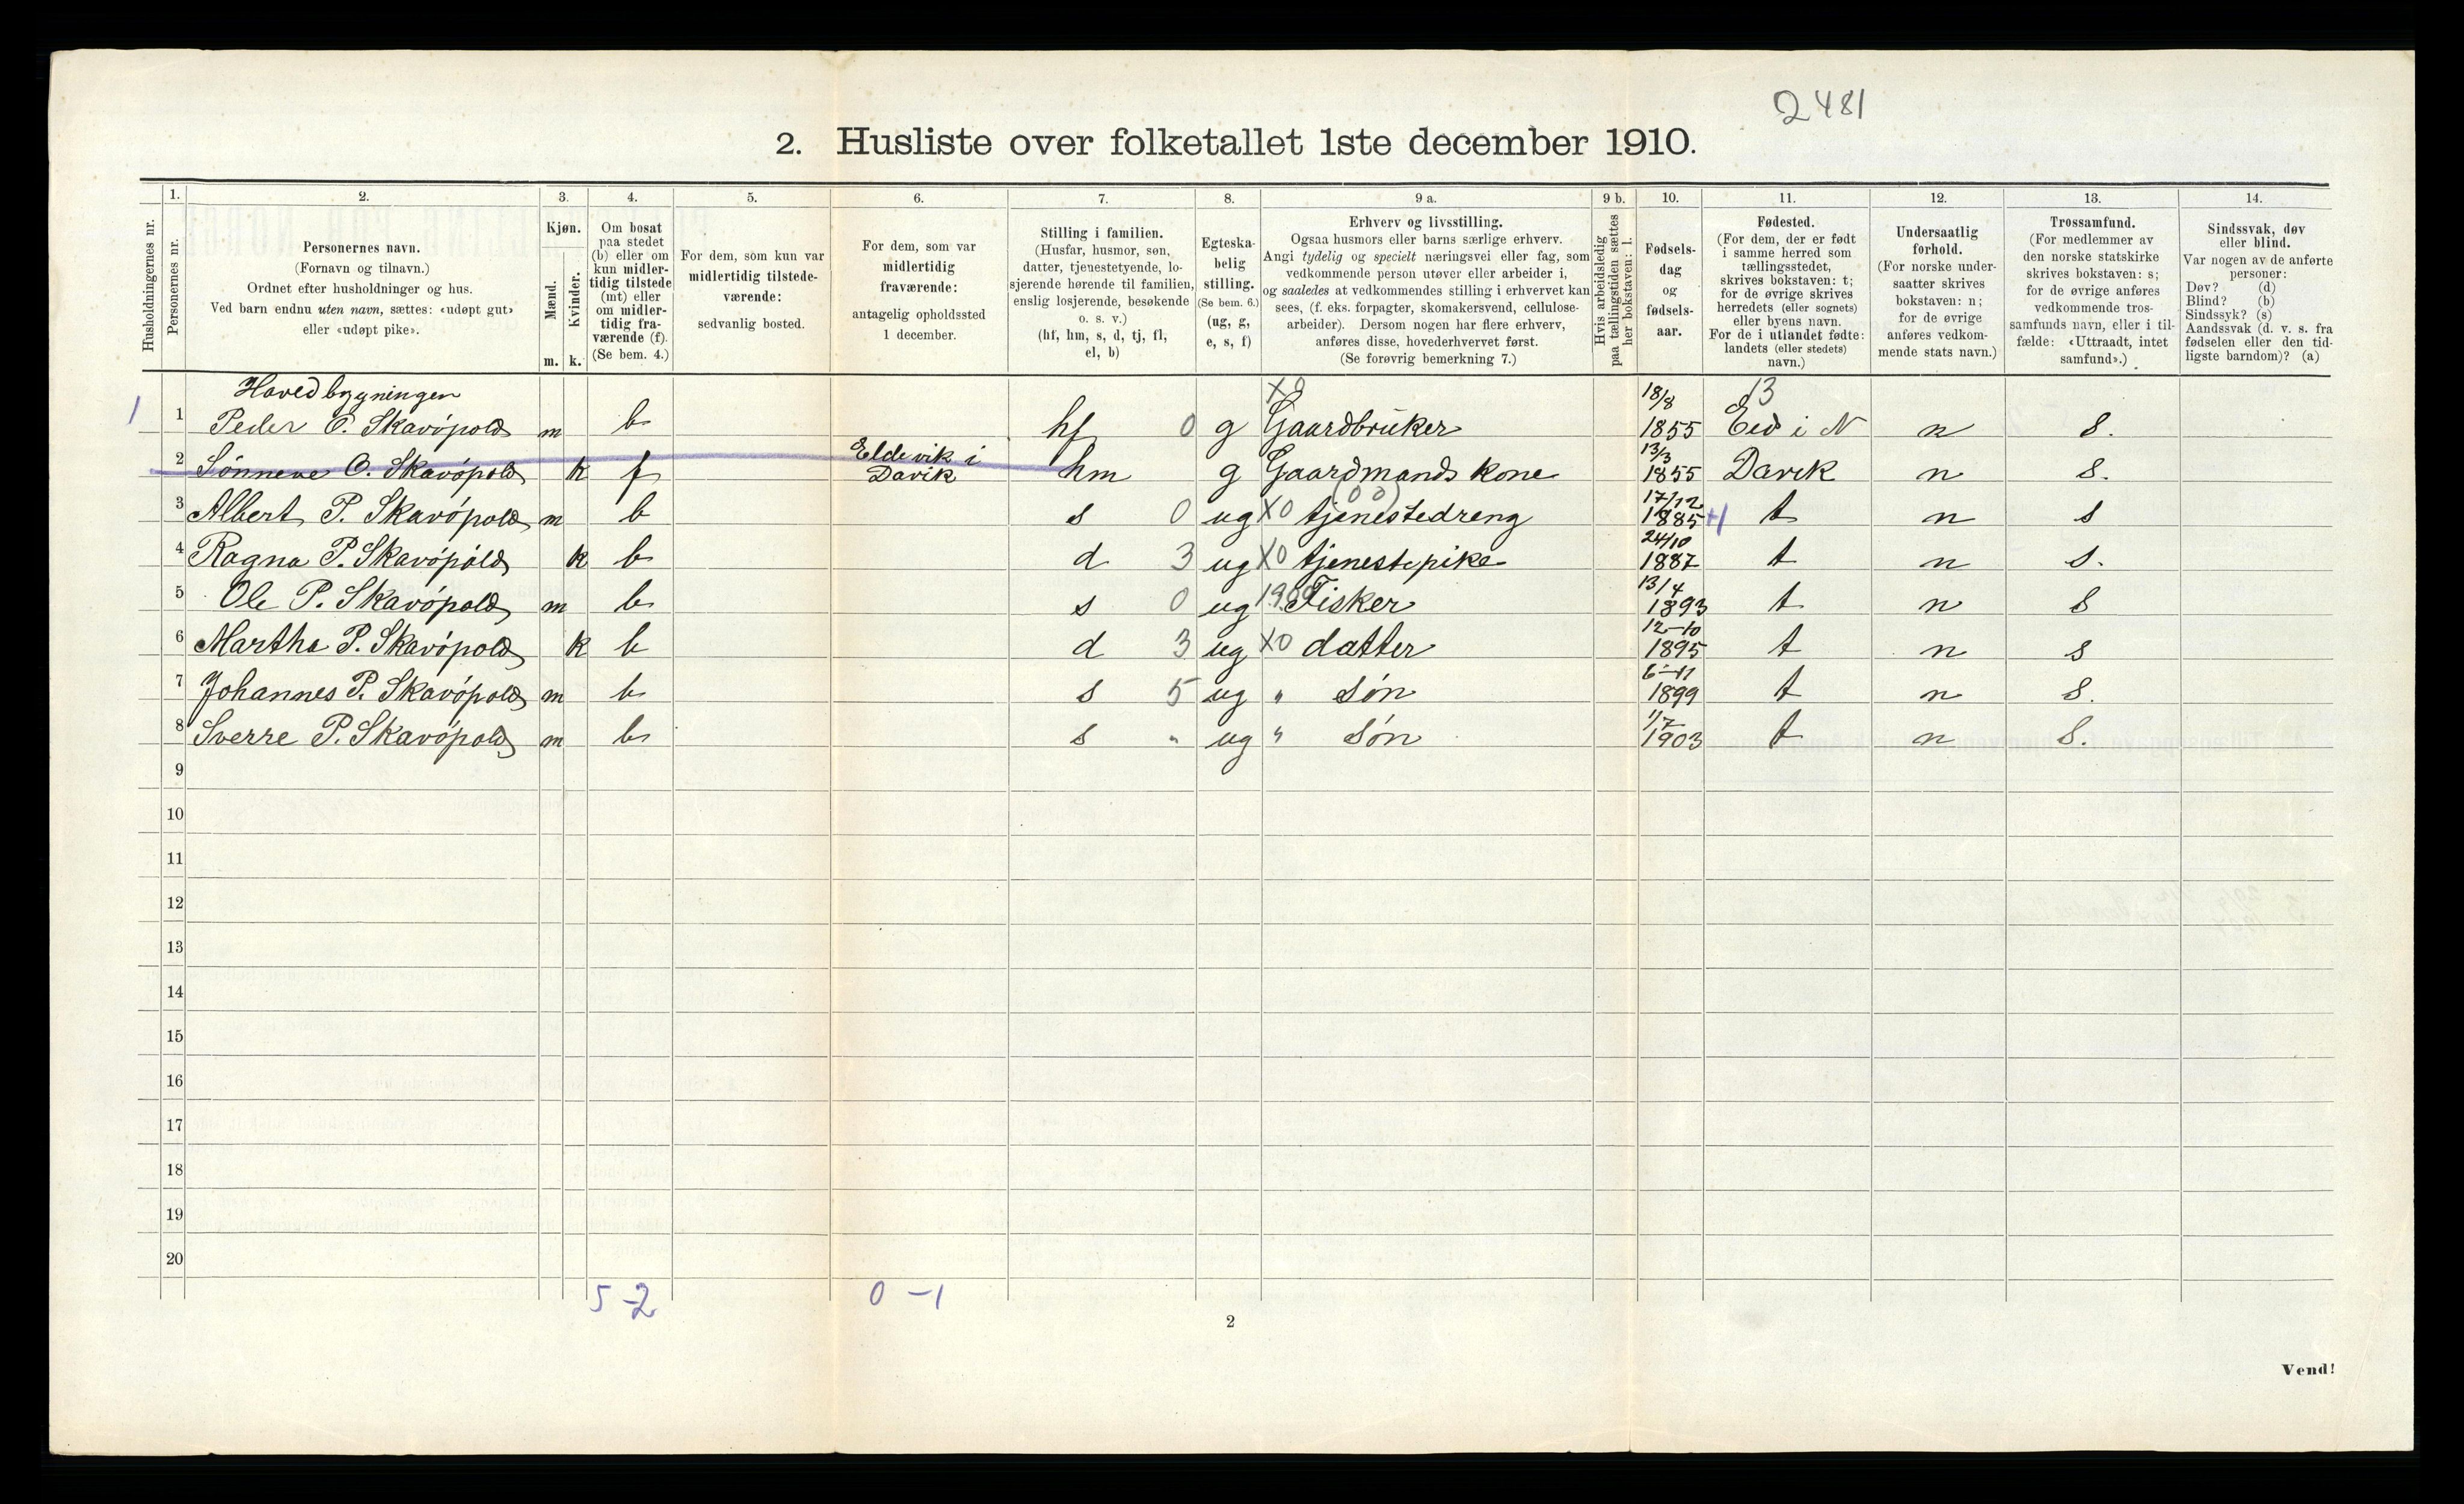 2481
2. Husliste over folketallet 1ste december 1910.
Husholdningernes nr.
1.
Personernes nr.
2.
Personernes navn.
(Fornavn og tilnavn.)
Ordnet efter husholdninger og hus.
Ved barn endnu uten navn, sættes: «udøpt gut»
eller «udøpt pike».
3.
Kjøn.
Mænd.
Kvinder.
m. k.
4.
Om bosat
paa stedet
(b) eller om
kun midler-
tidig tilstede
(mt) eller
om midler-
tidig fra-
værende (f).
(Se bem. 4.)
5.
For dem, som kun var
midlertidig tilstede-
værende:
sedvanlig bosted.
6.
For dem, som var
midlertidig
fraværende:
antagelig opholdssted
1 december.
7.
Stilling i familien.
(Husfar, husmor, søn,
datter, tjenestetyende, lo-
sjerende hørende til familien,
enslig losjerende, besøkende
o. s. v.)
(hf, hm, s, d, tj, fl,
el, b)
8.
Egteska-
belig
stilling.
(Se bem. 6.)
(ug, g,
e, s, f)
9 a.
Erhverv og livsstilling.
Ogsaa husmors eller barns særlige erhverv.
Angi tydelig og specielt næringsvei eller fag, som
vedkommende person utøver eller arbeider i,
og saaledes at vedkommendes stilling i erhvervet kan
sees, (f. eks. forpagter, skomakersvend, cellulose-
arbeider). Dersom nogen har flere erhverv,
anføres disse, hovederhvervet først.
(Se forøvrig bemerkning 7.)
9 b.
Hvis arbeidsledig
paa tællingstiden sættes
her bokstaven: l.
10.
Fødsels-
dag
og
fødsels-
aar.
11.
Fødested.
(For dem, der er født
i samme herred som
tællingsstedet,
skrives bokstaven: t;
for de øvrige skrives
herredets (eller sognets)
eller byens navn.
For de i utlandet fødte:
landets (eller stedets)
navn.)
12.
Undersaatlig
forhold.
(For norske under-
saatter skrives
bokstaven: n;
for de øvrige
anføres vedkom-
mende stats navn.)
13.
Trossamfund.
(For medlemmer av
den norske statskirke
skrives bokstaven: s;
for de øvrige anføres
vedkommende tros-
samfunds navn, eller i til-
fælde: «Uttraadt, intet
samfund».)
14.
Sindssvak, døv
eller blind.
Var nogen av de anførte
personer:
Døv? (d)
Blind? (b)
Sindssyk? (s)
Aandssvak (d. v. s. fra
fødselen eller den tid-
ligste barndom)? (a)
Hovedbygningen
X0 18/8 13
1 1 Peder O. Skavöpold m b hf 0 g Gaardbruker 1855 Eid i N n s.
Eldevik i 13/3
2 Sønneve O. Skavöpold k f Davik hm g Gaardmands kone 1855 Davik n s.
(00) 17/12
3 Albert P. Skavöpold m b s 0 ug X0 tjenestedreng 1885 +1 t n s
24/10
4 Ragna P. Skavöpold k b d 3 ug X0 tjenestepike 1887 t n s.
13/4
5 Ole P. Skavöpold m b s 0 ug 1900 Fisker 1893 t n s
12-10
6 Martha P. Skavöpold k b d 3 ug X0 datter 1895 t n s
6-11
7 Johannes P. Skavöpold m b s 5 ug " søn 1899 t n s.
1/7
8 Sverre P. Skavöpold m b s " ug " søn 1903 t n s.
9
10
11
12
13
14
15
16
17
18
19
20
5-2 0-1
2
Vend!